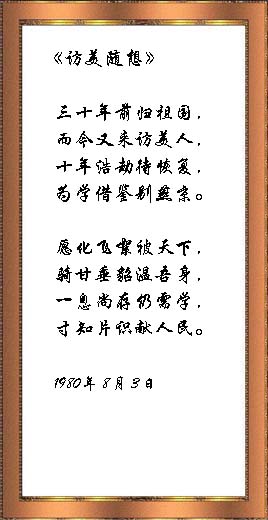 《访美随想》
三十年前归祖国，
而今又来访美人，
十年浩劫待恢复，
为学借鉴别燕京。
愿化飞絮被天下，
骑甘垂貂温吾身，
一息尚存仍需学，
寸知片识献人民。
1980年8月3日